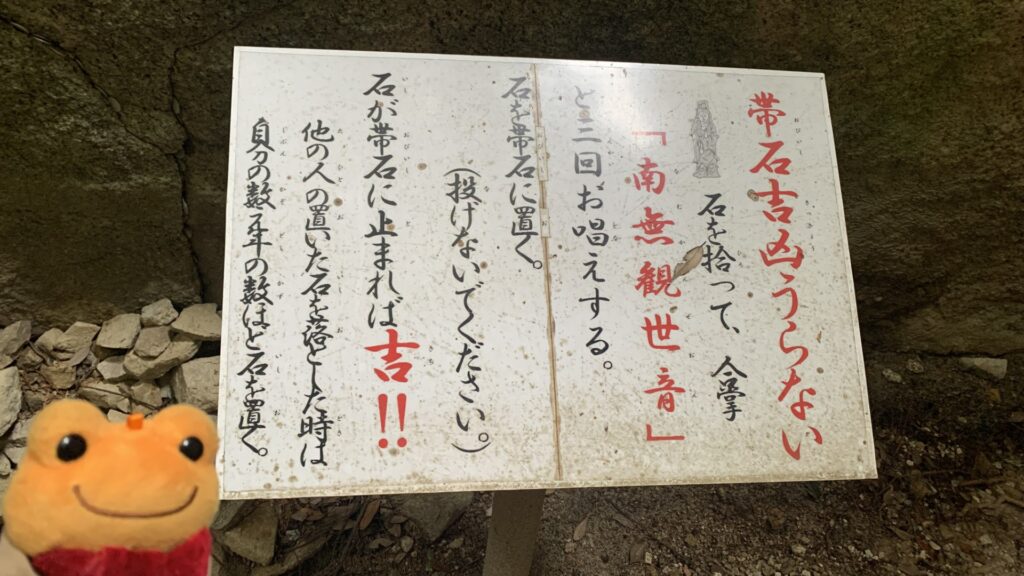 帯石吉凶うらない
石を拾って、合掌
「南無観世音」
と三回お唱えする。
石を帯石に置く。
(投げないでください。)
石が帯石に止まれば吉!!
他の人の置いた石を落とした時は
自分の数え年の数ほど石を置く。